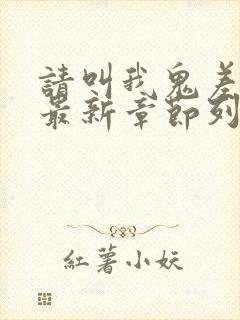 請叫我鬼差
最新章節列
紅薯小妖